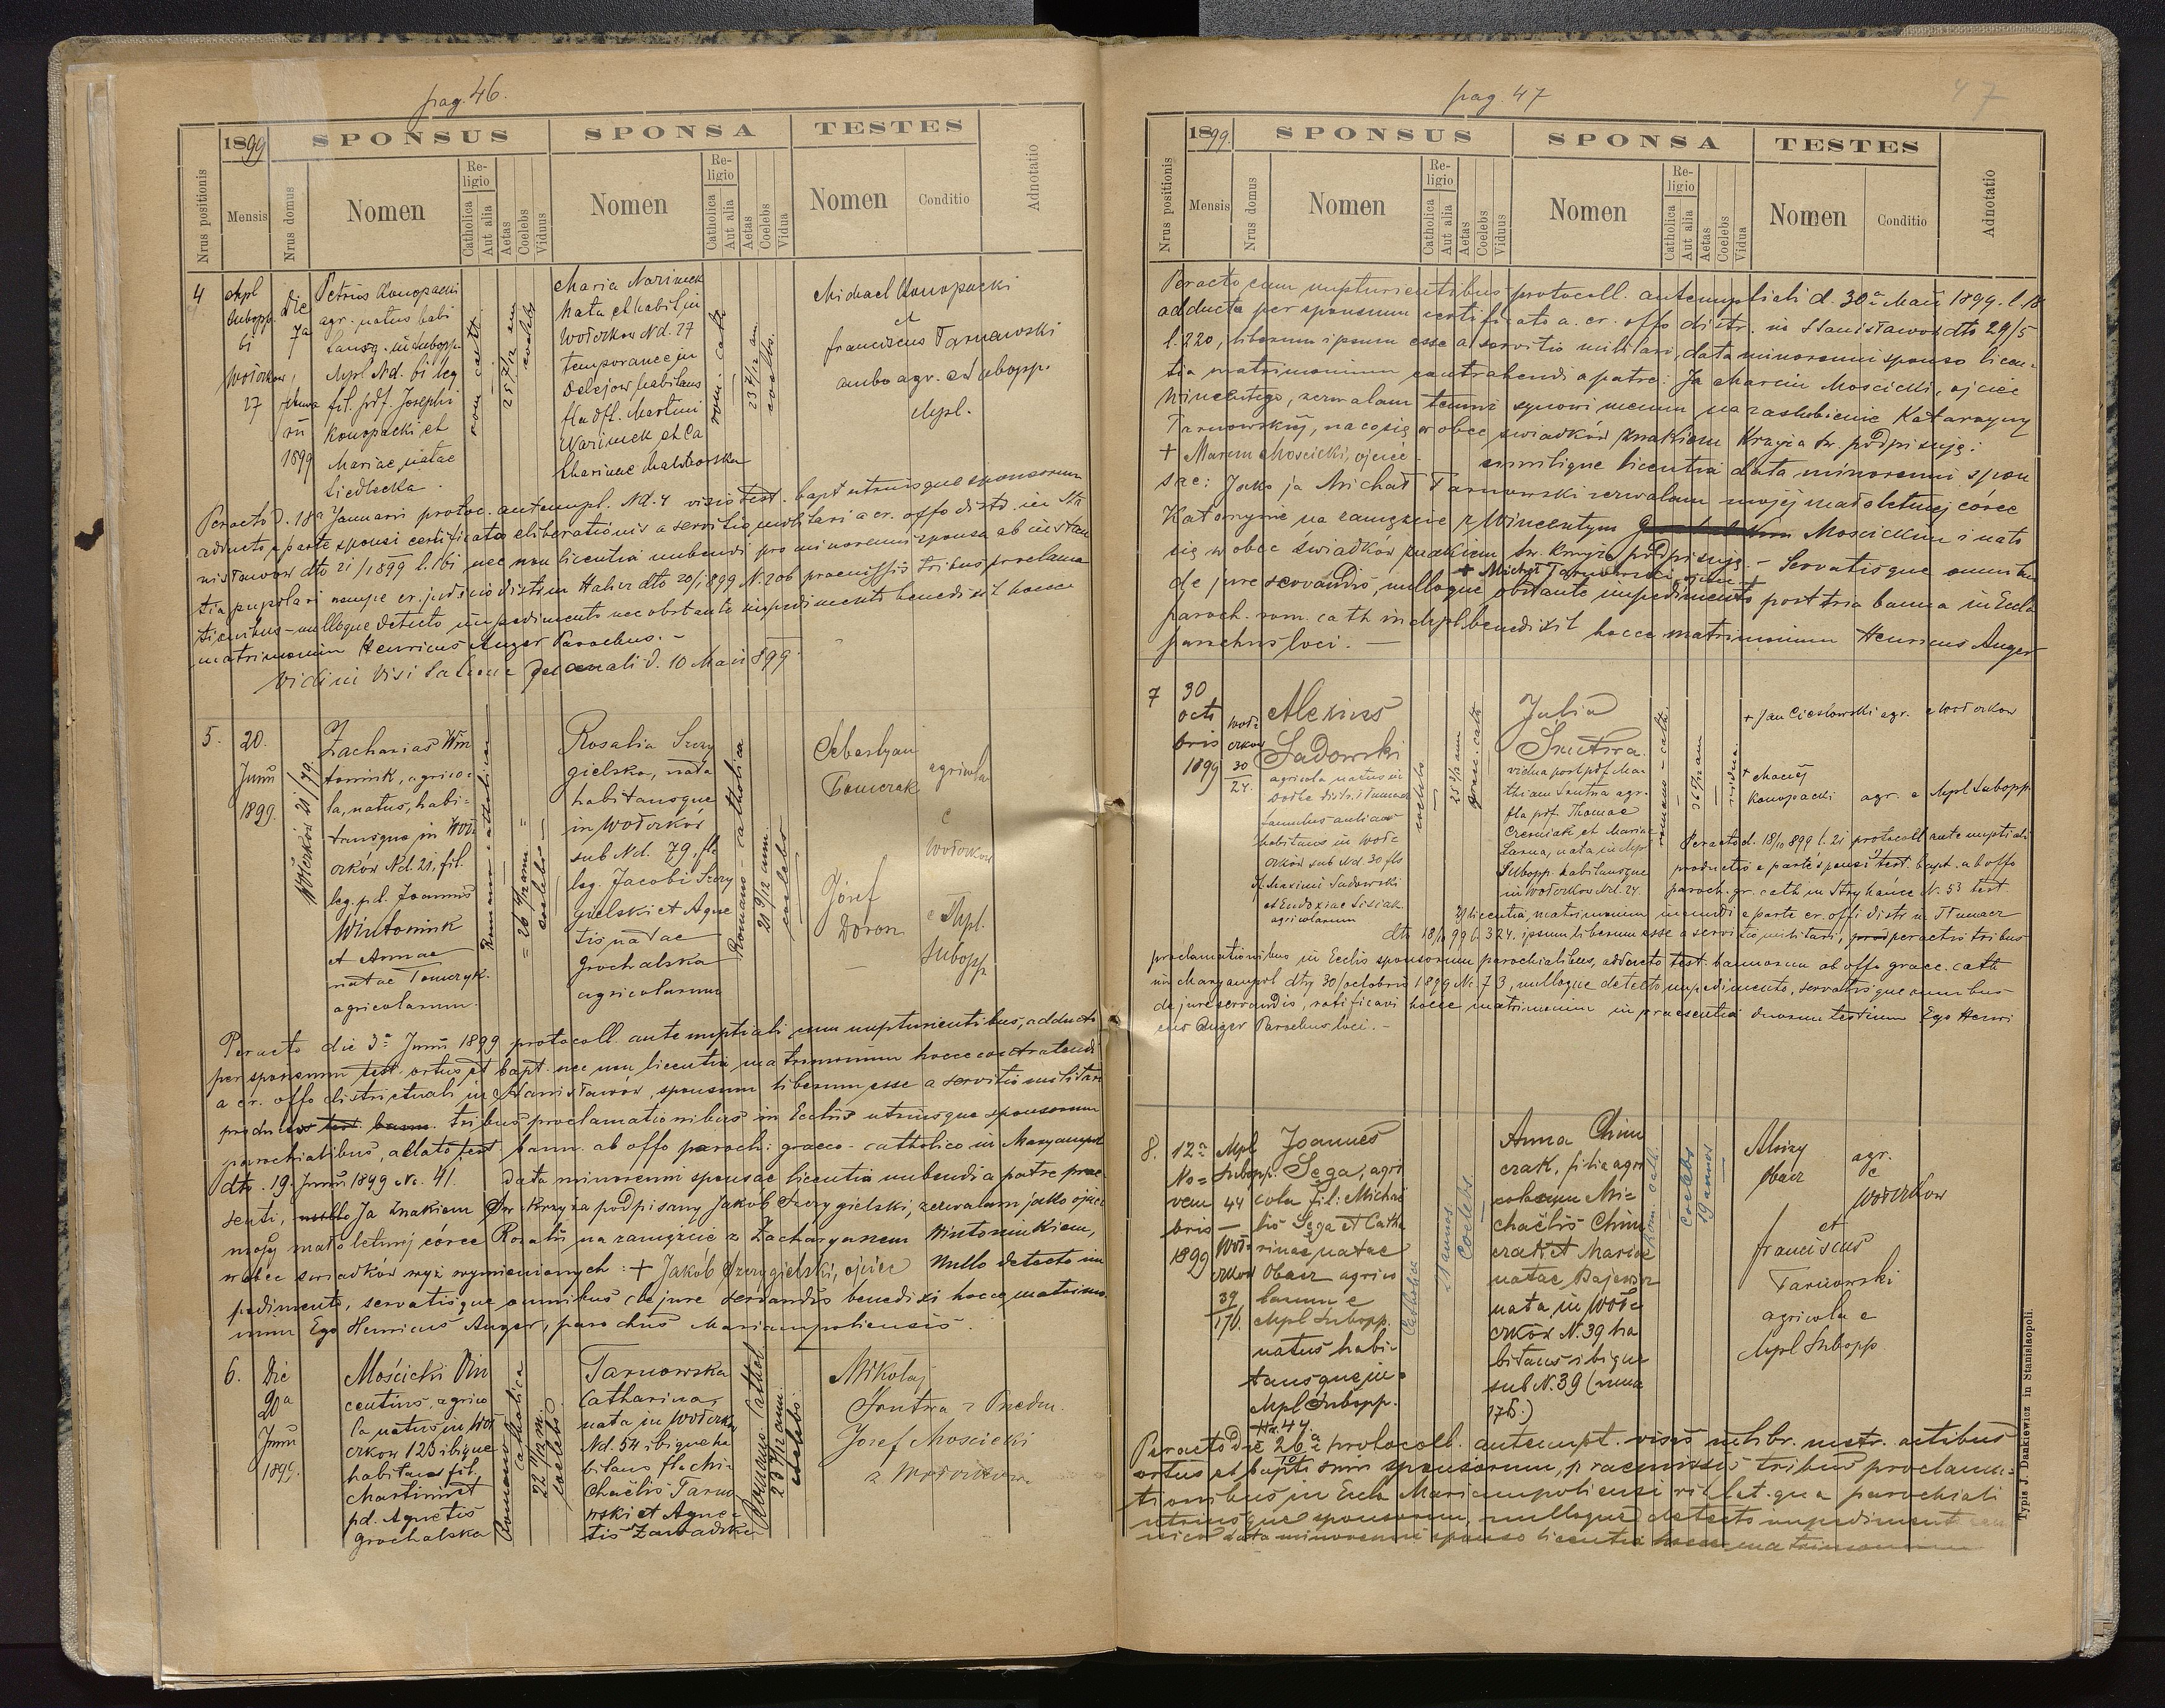 pag. 46.
1899
SPONSUS
SPONSA
TESTES
Nrus positionis
Mensis
Nrus domus
Nomen
Religio
Catholica
Aut alia
Aetas
Coelebs
Viduus
Nomen
Religio
Catholica
Aut alia
Aetas
Coelebs
Vidua
Nomen
Conditio
Adnotatio
4
Mpl
Subopp.
61
Wołczkow,
27
Die
7a
1899
Petrus Konopacki
agr. natus habi
tansq. in Subopp
Mpl Nd. 61 leg
fil. pdf. Josephi
Konopacki et
Mariae natae
Siedlecka.
rom. cath.
25 7/12 an
coelebs
Maria Warimek
nata et habit. in
Wołczkow Nd. 27
temporanee in
Delejow habitans
fla dfl. Martini
Warimek et Ca
tharinae
rom. cath
23 7/12 an
coelebs.
Michael Konopacki
et
Franciscus Tarnawski
ambo agr. e Subopp.
Mpl.
Peracto d. 18a Januarii protoc. antenupt. Nd. 4 visis test. bapt utriusque sponsorum
adducto a parte sponsi certificato liberationis a servitio militari a cr. offo distr. in Sta
nisławow dto 21/1 1899 l. 161 nec non licentia nubendi pro minorenni sponsa ab instan
tia pupilari nempe cr. judicio distr in Halicz dto 20/1 899 N. 206 praemissis tribus proclama
tionibus - nulloque detecto impedimento nec obstante impedimento benedixit hocce
matrimonium Henricus Auger Parochus. -
Vidi in Visitatione Decanali d. 10 Maii 899.
5.
20.
Junii
1899.
Wołczków 21/79.
Zacharias Win
toniuk, agrico-
la, natus, habi-
tansque in Woł
czków Nd. 21, fil.
leg. pd. Joannis
Wintoniuk
et Annae
natae Tomczyk.
agricolarum.
Romano-catholica
coelebs
Rosalia Szczy
gielska, nata
habitansque
in Wołczkow
sub Nd. 79, fla
leg. Jacobi Szczy
gielski et Agne
tis natae
Grochalska
agricolarum
Romano-catholica
20 9/12 ann.
coelebs
Sebastyan
Tomczak
agricola
e
Wołczkow
Józef
Doron
e Mpl.
Subopp
Peracto die 3a Junii 1899 protocoll. antenuptiali cum nupturientibus, adducto
per sponsum test. ortus et bapt. nec non licentia matrimonium hocce contrahendi
a cr. offo districtuali in Stanisławow, sponsum liberum esse a servitio militari
tribus proclamationibus in Ecclis utriusque sponsorum
parochialibus, allato test bann. ab offo paroch: graeco-catholico in Maryampol
dto. 19 Junii 1899 No. 41. data minorenni sponsae licentia nubendi a patre prae
senti, Ja znakiem św. Krzyża podpisany Jakób Szczygielski, zezwalam jako ojciec
mojej małoletniej córce Rozalii na zamążcie z Zacharyaszem Wintoniukiem,
wobec swiadków wyż wymienionych: + Jakób Szczygielski, ojciec Nullo detecto im
pedimento, servatisque omnibus de jure servandis benedixi hocce matrimo
nium Ego Henricus Auger, parochus Mariampoliensis.
6.
Die
20a
Junii
1899.
Mościcki Vin
centius, agrico
la natus in Woł
czkow 123 ibique
habitans fil.
Martini et
pd. Agnetis
Grochalska
Romano catholica
22 11/12 an.
coelebs
Tarnowska
Catharina,
nata in Wołczkow
Nd. 54 ibique ha
bitans fla Mi-
chaëlis Tarno
wski et Agne-
tis Zawadzka
Romano Cathol.
coelebs
Mikołaj
Smetra z Przedm.
Jozef Moscicki
z Wołczkowa
pag. 47
47
1899.
SPONSUS
SPONSA
TESTES
Nrus positionis
Mensis
Nrus domus
Nomen
Religio
Catholica
Aut alia
Aetas
Coelebs
Viduus
Nomen
Religio
Catholica
Aut alia
Aetas
Coelebs
Vidua
Nomen
Conditio
Adnotatio
Peracto cum nupturientibus protocoll. antenuptiali d. 30a Maii 1899. l. 18
adducto per sponsum certificato a cr. offo distr. in Stanisławow dto 29/5
l. 220, liberum ipsum esse a servitio militari, data minorenni sponso licen-
tia matrimonium contrahendi a patre: Ja Marcin Moscicki, ojciec
Wincentego, zezwalam temuż synowi memu na zaslubienie Katarzyny
Tarnowskiej, na co się wobec swiadków znakiem Krzyża św. podpisuję:
+ Marcin Moscicki, ojciec - similique licentia data minorenni spon
sae: Jako ja Michał Tarnowski zezwalam mojej małoletniej córce
Katarzynie na zamążcie z Wincentym Moscickim i na to
się wobec świadków znakiem św. Krzyża podpisuję. - Servatisque omnibus
+ Michał Tarnowski, ojciec +
de jure servandis, nulloque obstante impedimento post tria banna in Eccla
paroch. rom. cath in Mpl benedixit hocce matrimonium Henricus Auger
parochus loci. -
7
30
octo
bris
1899
Woł-
czkow
30
24.
Alexius
Sadowski
agricola natus in
distr. Tłumacz
habitans in Woł-
czkow sub Nd. 30 fls
Maximi Sadowski
et Eudoxiae Lisiak
agricolarum
coelebs
25 an
graec. cath
Julia
Smetra
vidua post pdf Ma-
thiam Smetra agr.
fla pdf. Thomae
Czerniak et Mariae
nata in Mpl
Subopp. habitansque
in Wołczkow Nd. 24.
romano-cath.
36 an
vidua
+ Jan Cieslowski agr. e Wołczkow
+ Maciej
Konopacki agr. e Mpl Subopp
Peracto d. 18/10 899 l. 21 protocoll ante nuptiali
productis e parte sponsi test. bapt. ab offo
paroch. gr. cath in Stryhańce N. 53 test.
licentia, matrimonium ineundi e parte cr. offi distr in Tłumacz
dto 18/10 99 l. 324. ipsum liberum esse a servitio militari, peractis tribus
proclamationibus in Ecclis sponsorum parochialibus, adducto test. bannorum ab offo graec. cath
in Maryampol dto 30/octobris 1899 No 73, nulloque detecto impedimento, servatisque omnibus
de jure servandis, ratificavi hocce matrimonium in praesentia duorum testium Ego Henri
cus Auger Parochus loci. -
8.
12a
No-
vem
bris
1899
Mpl
Subopp.
44
Woł-
czkow
39
176.
Joannes
Sęga, agri
cola fil: Micha
lis Sęga et Catha
rinae natae
Obacz agrico
larum e
Mpl Subopp.
natus habi-
tansque in
Mpl Subopp.
Nd. 44.
Catholica
21 annos
Coelebs
Anna Chim
czak, filia agri
colarum Mi-
chaëlis Chim
czak et Mariae
natae
nata in Woł-
czkow N. 39 ha
bitans ibique
sub N. 39 (nunc
176.)
Rom. cath.
Coelebs
19 annos
Aloizy
Obacz
agr.
e
Wołczkow
et
Franciscus
Tarnowski
agricola e
Mpl Subopp
Peracto die 26a protocoll. antenupt. visis in libr. metr. actibus
ortus et bapti sponsorum, praemissis tribus proclama-
tionibus in Eccla Mariampoliensi rit. lat. qua parochiali
utriusque sponsorum, nulloque detecto impedimento
data minorenni sponso licentia hocce matrimonium
Typis J. Dankiewicz in Stanislaopoli.